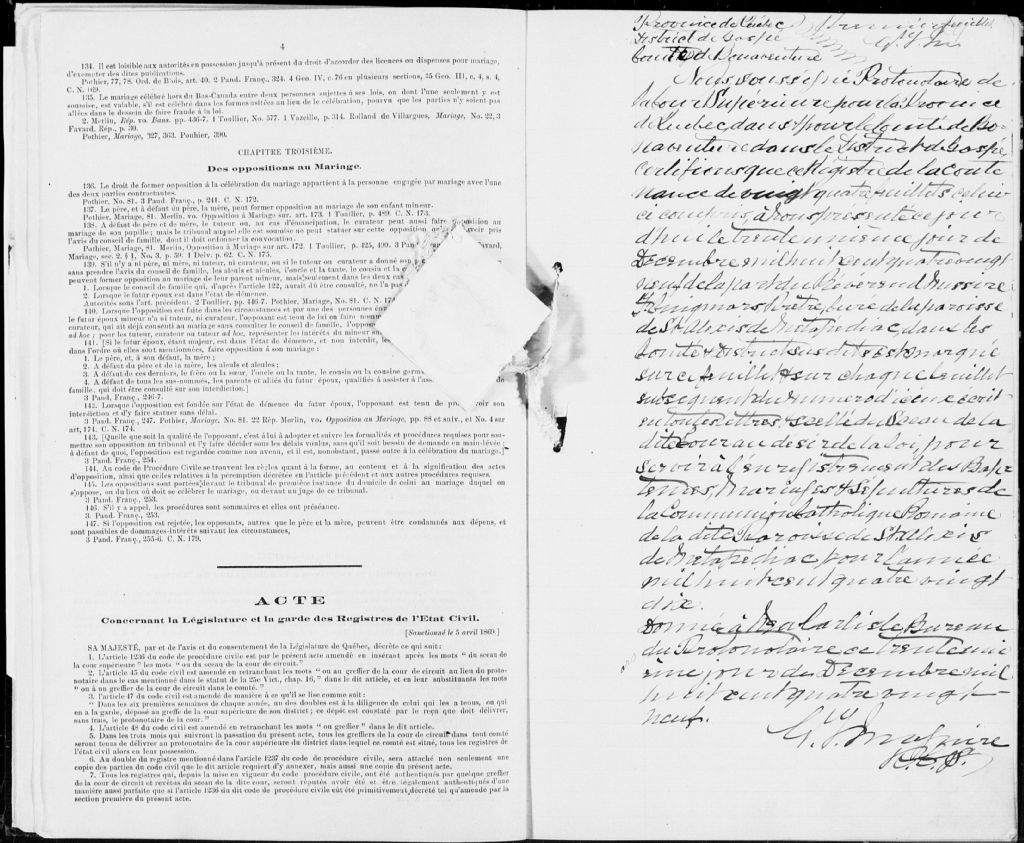 4
134. Il est loisible aux autorités en possession jusqu'à présent du droit d'accorder des licences ou dispenses pour mariage,
d'exempter des dites publications.
Pothier, 77, 78. Ord. de Blois, art. 40. 2 Pand. Franç., 324. 4 Geo. IV, c. 76 en plusieurs sections, 35 Geo. III, c. 4, s. 4,
C. N. 169.
135. Le mariage célébré hors du Bas-Canada entre deux personnes sujettes à ses lois, ou dont l'une seulement y est
soumise, est valable, s'il est célébré dans les formes usitées au lieu de le célébration, pourvu que les parties n'y soient pas
allées dans le dessein de faire fraude à la loi.
2. Merlin, Rép. vo. Bans. pp. 436-7. 1 Toullier, No. 577. 1 Vazeille, p. 314. Rolland de Villargues, Mariage, No. 22, 3
Favard. Rép., p. 30.
Pothier, Mariage, 327, 363. Pouhier, 390.
CHAPITRE TROISIÈME.
Des oppositions au Mariage.
136. Le droit de former opposition à la célébration du mariage appartient à la personne engagée par mariage avec l'une
des deux parties contractantes.
Pothier, No. 81. 3 Pand. Franç., p. 241. C. N. 172.
137. Le père, et à défaut du père, la mère, peut former opposition au mariage de son enfant mineur.
Pothier, Mariage, 81. Merlin, vo. Opposition à Mariage sur. art. 173. 1 Toullier, p. 489. C. N. 173.
138. A défaut de père et de mère, le tuteur ou, au cas d'émancipation, le curateur peut aussi faire opposition au
mariage de son pupille; mais le tribunal auquel elle est soumise ne peut statuer sur cette opposition avoir pris
l'avis du conseil de famille, dont il doit ordonner la convocation.
Pothier, Mariage, 81. Merlin, Opposition à Mariage sur art. 172. 1 Toullier, p. 425, 490. 3 Pand
Mariage, sec. 2, § 1, No. 3, p. 59. 1 Delv. p. 62. C. N. 175.
139. S'il n'y a ni père, ni mère, ni tuteur, ni curateur, ou si le tuteur ou curateur a donné son
sans prendre l'avis du conseil de famille, les aïeuls et aïeules, l'oncle et la tante, le cousin et la
peuvent former opposition au mariage de leur parent mineur, mais seulement dans les deux cas
1. Lorsque le conseil de famille qui, d'après l'article 122, aurait dû être consulté, ne l'a pas
2. Lorsque le futur époux est dans l'état de démence.
Autorités sous l'art. précédent. 2 Toullier, pp. 446-7. Pothier, Mariage, No. 81. C. N. 174
140. Lorsque l'opposition est faite dans les circonstances et par une des personnes
le futur époux mineur n'a ni tuteur, ni curateur, l'opposant est tenu de lui en faire nommer
curateur, qui ait déjà consenti au mariage sans consulter le conseil de famille, l'opposant
ad hoc; pour les tuteur, curateur ou tuteur ad hoc, représenter les intérêts du mineur sur
141. [Si le futur époux, étant majeur, est dans l'état de démence, et non interdit, les
dans l'ordre où elles sont mentionnées, faire opposition à son mariage:
1. Le père, et, à son défaut, la mère;
2. A défaut du père et de la mère, les aïeuls et aïeules;
3. A défaut de ces derniers, le frère ou la sœur, l'oncle ou la tante, le cousin ou la cousine germaine
4. A défaut de tous les sus-nommés, les parents et alliés du futur époux, qualifiés à assister à l'ass de
famille, qui doit être consulté sur son interdiction.]
3 Pand. Franç., 246-7.
142. Lorsque l'opposition est fondée sur l'état de démence du futur époux, l'opposant est tenu de pro voir son
interdiction et d'y faire statuer sans délai.
3 Pand. Franç., 247. Pothier, Mariage, No. 81. 22 Rép. Merlin, vo. Opposition au Mariage, pp. 88 et suiv., et No. 4 sur
art, 174. C. N. 174.
143. [Quelle que soit la qualité de l'opposant, c'est à lui à adopter et suivre les formalités et procédures requises pour soumettre
son opposition au tribunal et l'y faire décider sous les délais voulus, sans qu'il soit besoin de demande en main-levée;
à défaut de quoi, l'opposition est regardée comme non avenu, et il est, nonobstant, passé outre à la célébration du mariage.]
3 Pand. Franç., 254.
144. Au code de Procédure Civile se trouvent les règles quant à la forme, au contenu et à la signification des actes
d'opposition, ainsi que celles relatives à la péremption décrétée en l'article précédent et aux autres procédures requises.
145. Les oppositions sont portées devant le tribunal de première instance du domicile de celui au mariage duquel on
s'oppose, ou du lieu où doit se célébrer le mariage, ou devant un juge de ce tribunal.
3 Pand. Franç., 253.
146. S'il y a appel, les procédures sont sommaires et elles ont préséance.
3. Pand. Franç., 253.
147. Si l'opposition est rejetée, les opposants, autres que le père et la mère, peuvent être condamnés aux dépens, et
sont passibles de dommages-intérêts suivant les circonstances,
3 Pand. Franç., 255-6. C. N. 179.
ACTE
Concernant la Législature et la garde des Registres de l'Etat Civil.
[Sanctionné le 5 avril 1869.]
SA MAJESTÉ, par et de l'avis et du consentement de la Législature de Québec, décrète ce qui suit:
1. L'article 1236 du code de procédure civile est par le présent acte amendé en insérant après les mots "du sceau de
la cour supérieure" les mots "ou du sceau de la cour de circuit."
2. L'article 45 du code civil est amendé en retranchant les mots "ou au greffier de la cour de circuit au lieu du protonotaire
dans le cas mentionné dans le statut de la 25e Vict., chap. 16," dans le dit article, et en leur substituants les mots
"ou à un greffier de la cour de circuit dans le comté."
3. L'article 47 du code civil est amendé de manière à ce qu'il se lise comme suit:
"Dans les six premières semaines de chaque année, un des doubles est à la diligence de celui qui les a tenus, ou qui
en a la garde, déposé au greffe de la cour supérieure de son district; ce dépôt est constaté par le reçu que doit délivrer,
sans frais, le protonotaire de la cour."
4. L'article 48 du code civil est amendé en retranchant les mots "ou greffier" dans le dit article.
5. Dans les trois mois qui suivront la passation du présent acte, tous les greffiers de la cour de circuit dans tout comté
seront tenus de délivrer au protonotaire de la cour supérieure du district dans lequel ce comté est situé, tous les registres de
l'état civil alors en leur possession.
6. Au double du registre mentionné dans l'article 1237 du code de procédure civile, sera attaché non seulement une
copie des parties du code civil que le dit article requiert d'y annexer, mais aussi une copie du présent acte.
7. Tous les registres qui, depuis la mise en vigueur du code de procédure civile, ont été authentiqués par quelque greffier
de la cour de circuit et revêtus du sceau de la dite cour, seront réputés avoir été et être légalement authentiqués d'une
manière aussi parfaite que si l'article 1236 du dit code de procédure civile eût été primitivement décrété tel qu'amendé par la
section première du présent acte.
Province de Québec
District de Gaspé
Comté de Bonaventure
Premier feuillet
Nous, soussigné Protonotaire de
la Cour Supérieure pour la Province
de Québec, dans & pour le Comté de Bo-
naventure dans le District de Gaspé
certifions que ce Régistre de la conte
nance de vingt quatre feuillets, celui-
ci compris, à nous présenté ce jour
d'hui le trente unième jour de
Décembre mil huit cent quatre vingt
neuf de la part du Révérend Messire
Prêtre, Curé de la paroisse
de St Alexis de Matapédiac, dans les
Comté & District susdits est marqué
sur ce feuillet, & sur chaque feuillet
subséquent du numéro d'icelui écrit
en toutes lettres, scellé du Sceau de la
dite Cour au désir de la loi, pour
servoir à l'enregistrement des Bap-
têmes, Mariages & Sépultures de
la Communion Catholique Romaine
de la dite Paroisse de St Alexis
de Matapédiac pour l'année
mil huit cent quatre vingt
dix.
Donné à New Carlisle Bureau
du Protonotaire ce trente uni
ème jour de Décembre mil
huit cent quatre vingt
neuf.
P. C. S.